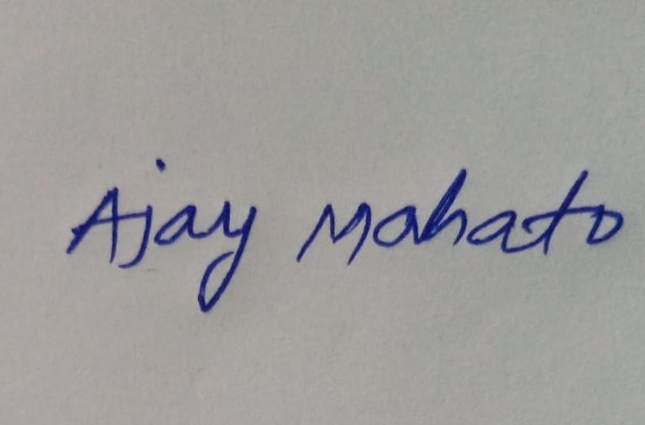 Ajay Mahato